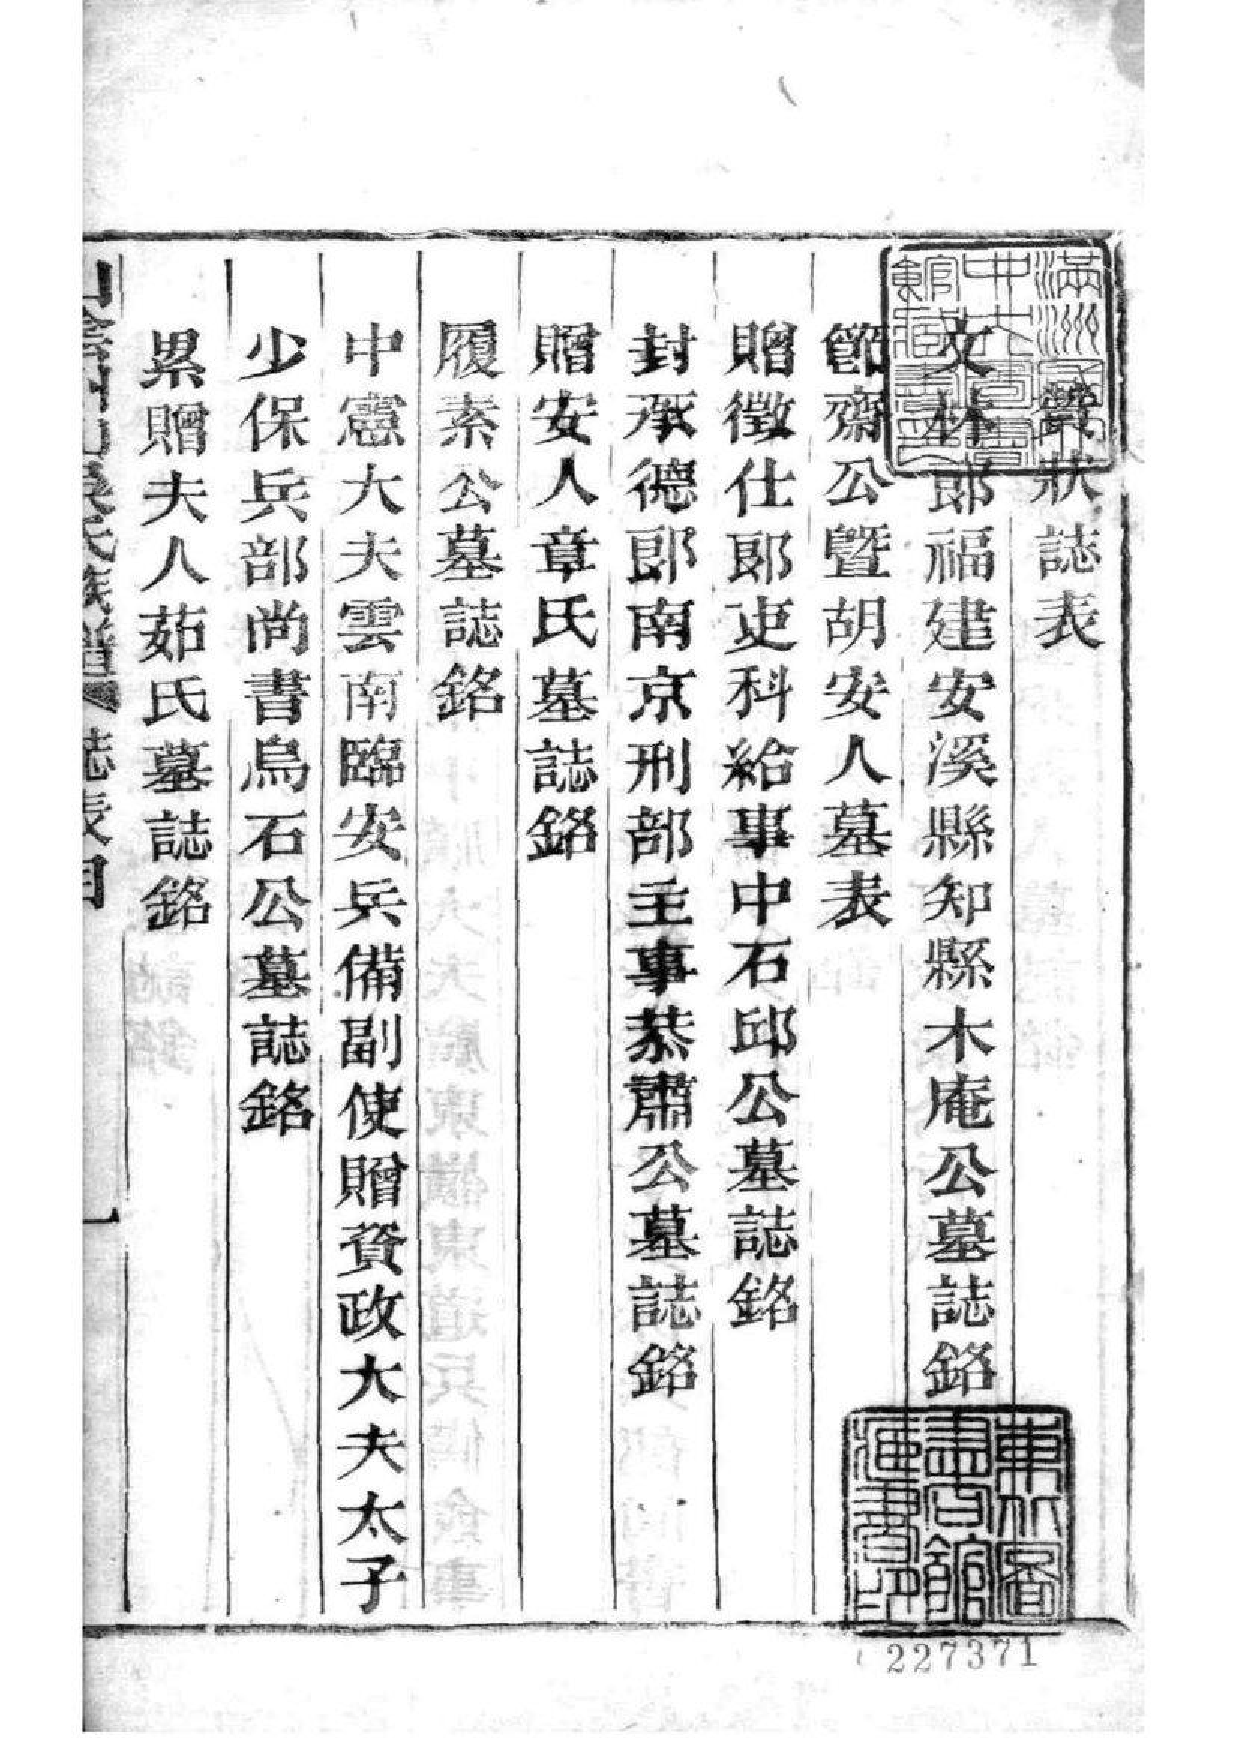 狀誌表
文林郎福建安溪縣知縣木庵公墓誌銘
節齋公暨胡安人墓表
贈徵仕郎吏科給事中石邱公墓誌銘
封承德郎南京刑部主事恭肅公墓誌銘
贈安人章氏墓誌銘
履素公墓誌銘
中憲大夫雲南臨安兵備副使贈資政大夫太子
少保兵部尚書烏石公墓誌銘
累贈夫人茹氏墓誌銘
山陰州山吳氏族譜 誌表目 一
東北圖書館藏書印
227371